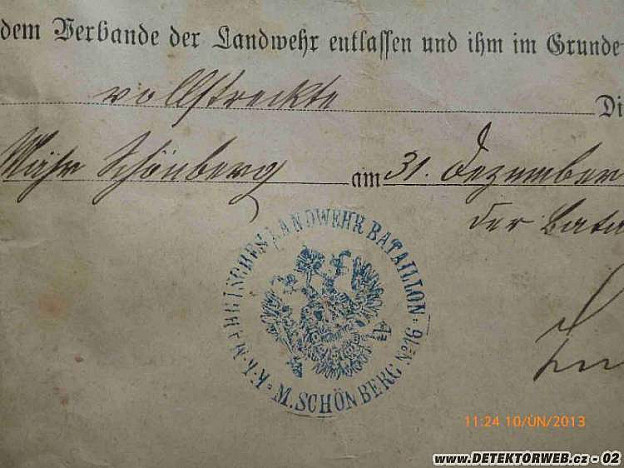 dem Verbande der Landwehr entlassen und ihm im Grunde
vollstreckte Di
Mähr Schönberg am 31. Dezember
der Bata
K.K. MÄHRISCHES LANDWEHR BATAILLON № 16
M. SCHÖNBERG
11:24 10/ÚN/2013
www.DETEKTORWEB.cz - 02